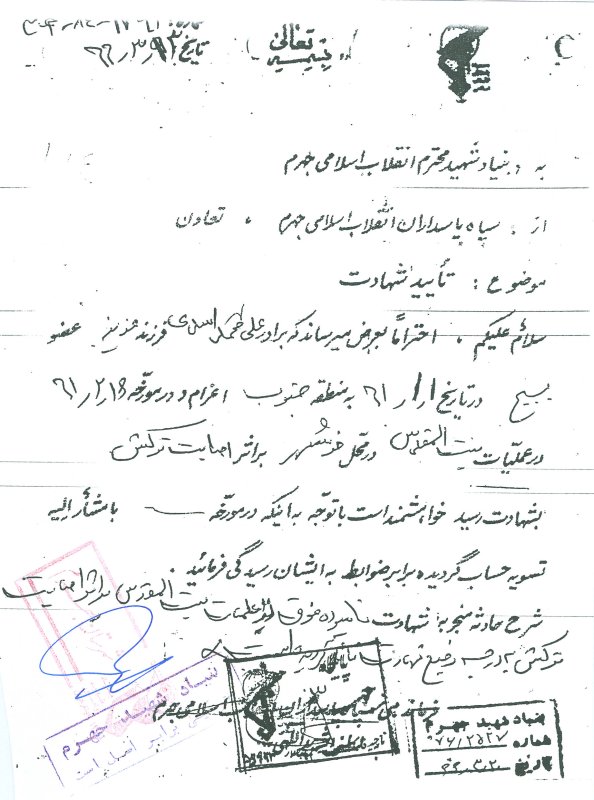 بسمه تعالی
تاریخ
به : بنیاد شهید محترم انقلاب اسلامی جهرم
از : سپاه پاسداران انقلاب اسلامی جهرم ، تعاون
موضوع : تأیید شهادت
سلام علیکم ، احتراماً بعرض میرساند که برادر علی اسدی فرزند عزیز عضو
بسیج در تاریخ ۶۱/۱/۱ به منطقه جنوب اعزام و در مورّخه ۶۱/۲/۱۸
در عملیّات بیت المقدس در محل خرمشهر بر اثر اصابت ترکش
بشهادت رسید خواهشمند است با توجّه به اینکه در مورّخه ـــ با مشارٌالیه
تسویه حساب گردیده برابر ضوابط به ایشان رسیدگی فرمائید .
شرح حادثه منجر به شهادت نامبرده فوق در عملیات بیت المقدس بر اثر اصابت
ترکش به درجه رفیع شهادت
سپاه پاسداران انقلاب اسلامی جهرم
بنیاد شهید جهرم
برابر اصل است
بنیاد شهید جهرم
شماره
تاریخ